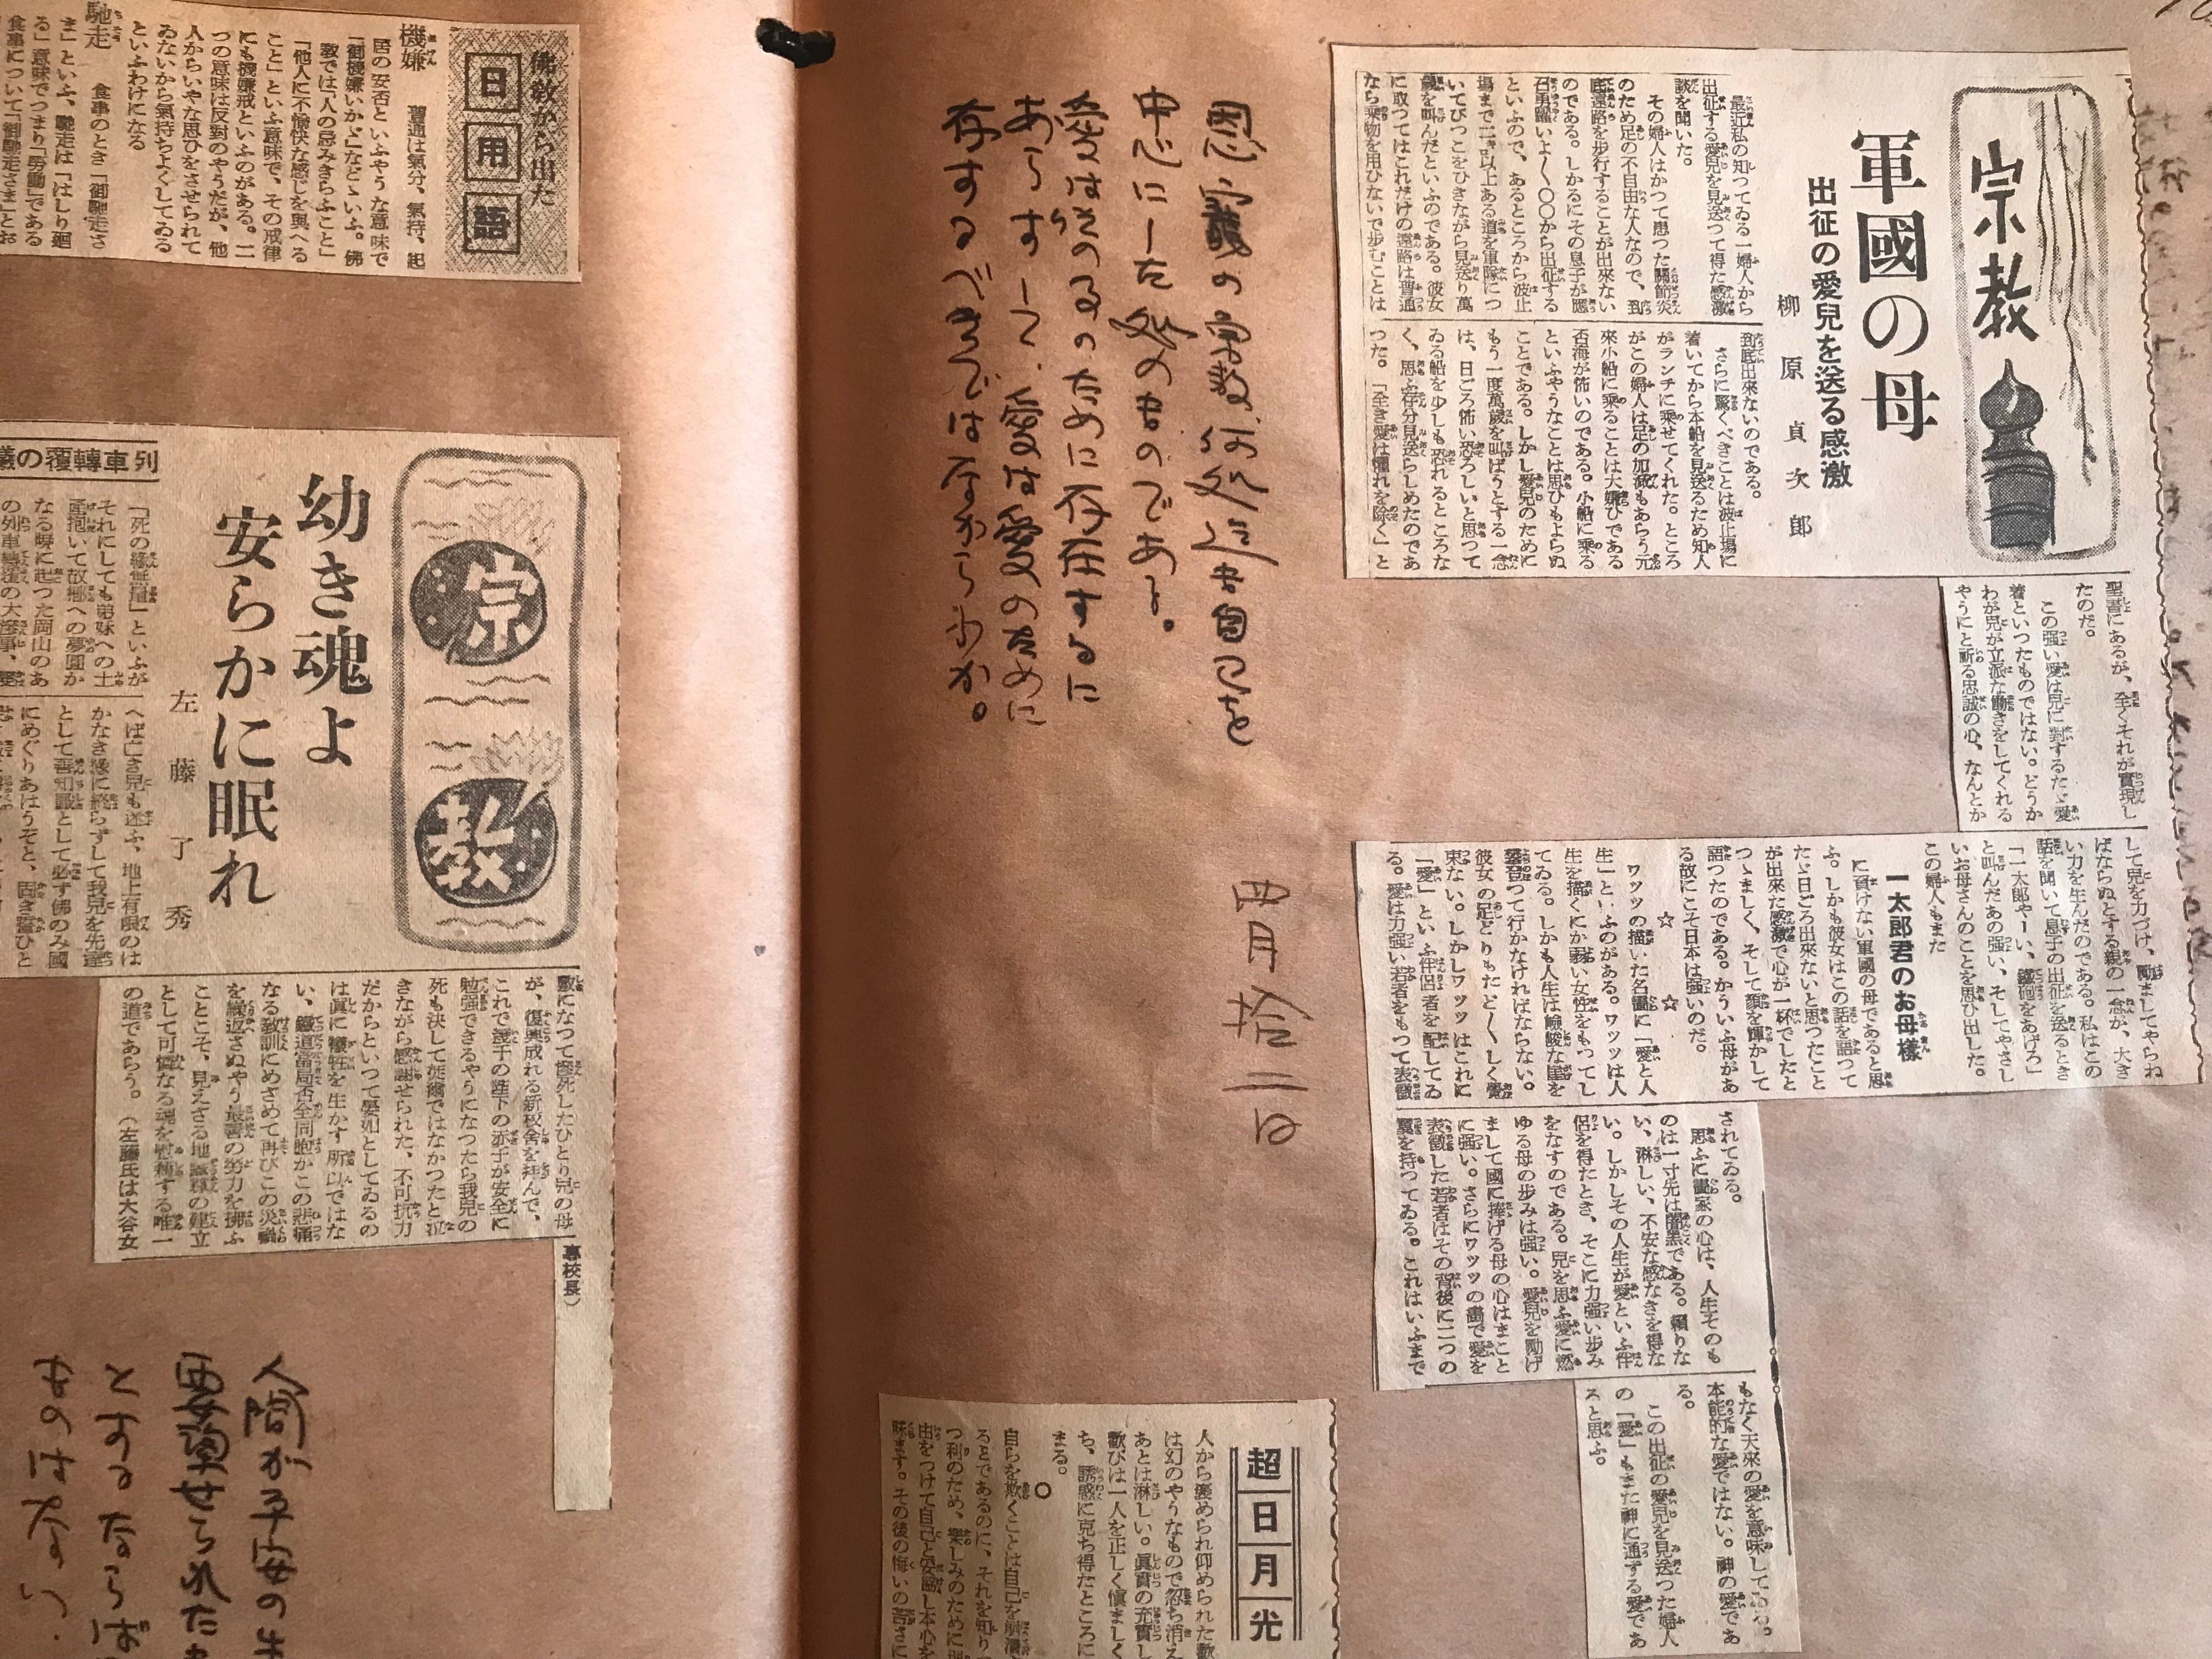 宗教
軍國の母
出征の愛兒を送る感激
柳原貞次郎
最近私の知つてゐる一婦人から
出征する愛兒を見送つて得た感激
談を聞いた。
その婦人はかつて患つた關節炎
のため足の不自由な人なので、到
底遠路を步行することが出來ない
のである。しかるにその息子が應
召勇躍いよ〱〇〇から出征する
といふので、あるところから波止
場まで二キロ以上ある道を軍隊につ
いてびつこをひきながら見送り萬
歲を叫んだといふのである。彼女
に取つてはこれだけの遠路は普通
なら乘物を用ひないで步むことは
到底出來ないのである。
さらに驚くべきことは波止場に
着いてから本船を見送るため知人
がランチに乘せてくれた。ところ
がこの婦人は足の加減もあらう元
來小船に乘ることは大嫌ひである
否海が怖いのである。小船に乘る
といふやうなことは思ひもよらぬ
ことである。しかし愛兒のために
もう一度萬歲を叫ばうとする一念
は、日ごろ怖い恐ろしいと思つて
ゐる船を少しも恐れるところな
く、思ふ存分見送らしめたのであ
つた。「全き愛は懼れを除く」と
聖書にあるが、全くそれが實現し
たのだ。
この强い愛は兒に對するたゞ愛
着といつたものではない。どうか
わが兒が立派な働きをしてくれる
やうにと祈る忠誠の心、なんとか
して兒を力づけ、勵ましてやらね
ばならぬとする親の一念が、大き
い力を生んだのである。私はこの
話を聞いて息子の出征を送るとき
「一太郎やーい、鐵砲をあげろ」
と叫んだあの强い、そしてやさし
いお母さんのことを思ひ出した。
この婦人もまた
一太郎君のお母樣
に負けない軍國の母であると思
ふ。しかも彼女はこの話を語つて
たゞ日ごろ出來ないと思つたこと
が出來た感激で心が一杯でしたと
つゝましく、そして顏を輝かして
語つたのである。かういふ母があ
る故にこそ日本は强いのだ。
☆ ☆
ワッツの描いた名畫に「愛と人
生」といふのがある。ワッツは人
生を描くにか弱い女性をもつてし
てゐる。しかも人生は嶮峻な崖を
攀登つて行かなければならない。
彼女の足どりもたど〱しく覺
束ない。しかしワッツはこれに
「愛」といふ伴侶者を配してゐ
る。愛は力强い若者をもつて表徵
されてゐる。
思ふに畫家の心は、人生そのも
のは一寸先は闇黑である。賴りな
い、淋しい、不安な感なきを得な
い。しかしその人生が愛といふ伴
侶を得たとき、そこに力强い步み
をなすのである。兒を思ふ愛に燃
ゆる母の步みは强い。愛兒を勵げ
まして國に捧げる母の心はまこと
に强い。さらにワッツの畫で愛を
表徵した若者はその背後に二つの
翼を持つてゐる。これはいふまで
もなく天來の愛を意味してゐる。
本能的な愛ではない。神の愛であ
る。
この出征の愛兒を見送つた婦人
の「愛」もまた神に通ずる愛であ
ると思ふ。
自己を
中心にした
ものである。
のために存在するに
あらずして、愛は愛のために
存するべきではなからうか。
四月拾二日
超日月光
人から褒められ仰められた歡
は幻のやうなもので忽ち消え
あとは淋しい。眞實の充實し
歡びは一人を正しく愼ましく
ち、誘惑に克ち得たところに
まる。
○
自らを欺くことは自己を崩潰
るとであるのに、それを知り
つ利のため、樂しみのために理
由をつけて自己と妥協し本心を
味ます。その後の悔いの苦さに
佛敎から出た
日用語
機嫌 普通は氣分、氣持、起
居の安否といふやうな意味で
「御機嫌いかゞ」などゝいふ。佛
敎では「人の忌みきらふこと」
「他人に不愉快な感じを與へる
こと」といふ意味で、その戒律
にも機嫌戒といふのがある。二
つの意味は反對のやうだが、他
人からいやな思ひをさせられて
ゐないから氣持ちよくしてゐる
といふわけになる
馳走 食事のとき「御馳走さ
ま」といふ、馳走は「はしり廻
る」意味でつまり「勞働」である
食事について「御馳走さま」とお
宗教
幼き魂よ
安らかに眠れ
左藤了秀
列車轉覆の
「死の緣無量」といふが
それにしても弟妹への土
產抱いて故鄕への夢圓か
なる瞬に起つた岡山のあ
の列車轉覆の大慘事、
へば亡き兒も迷ふ、地上有限のは
かなき緣に終らずして我兒を先達
として善知識として必ず佛のみ國
にめぐりあはうぞと、固き誓ひと
敷になつて慘死したひとり兒の母
が、復興成れる新校舍を拜んで、
これで幾千の陛下の赤子が安全に
勉强できるやうになつたら我兒の
死も決して徒爾ではなかつたと泣
きながら感謝せられた、不可抗力
だからといつて晏如としてゐるの
は眞に犧牲を生かす所以ではな
い、鐵道當局否全同胞がこの悲痛
なる敎訓にめざめて再びこの災禍
を繰返さぬやう最善の努力を拂ふ
ことこそ、見えざる地藏尊の建立
として可憐なる魂を慰藉する唯一
の道であらう。（左藤氏は大谷女
專校長）
人間が
せられた
とするならば
ものはない。